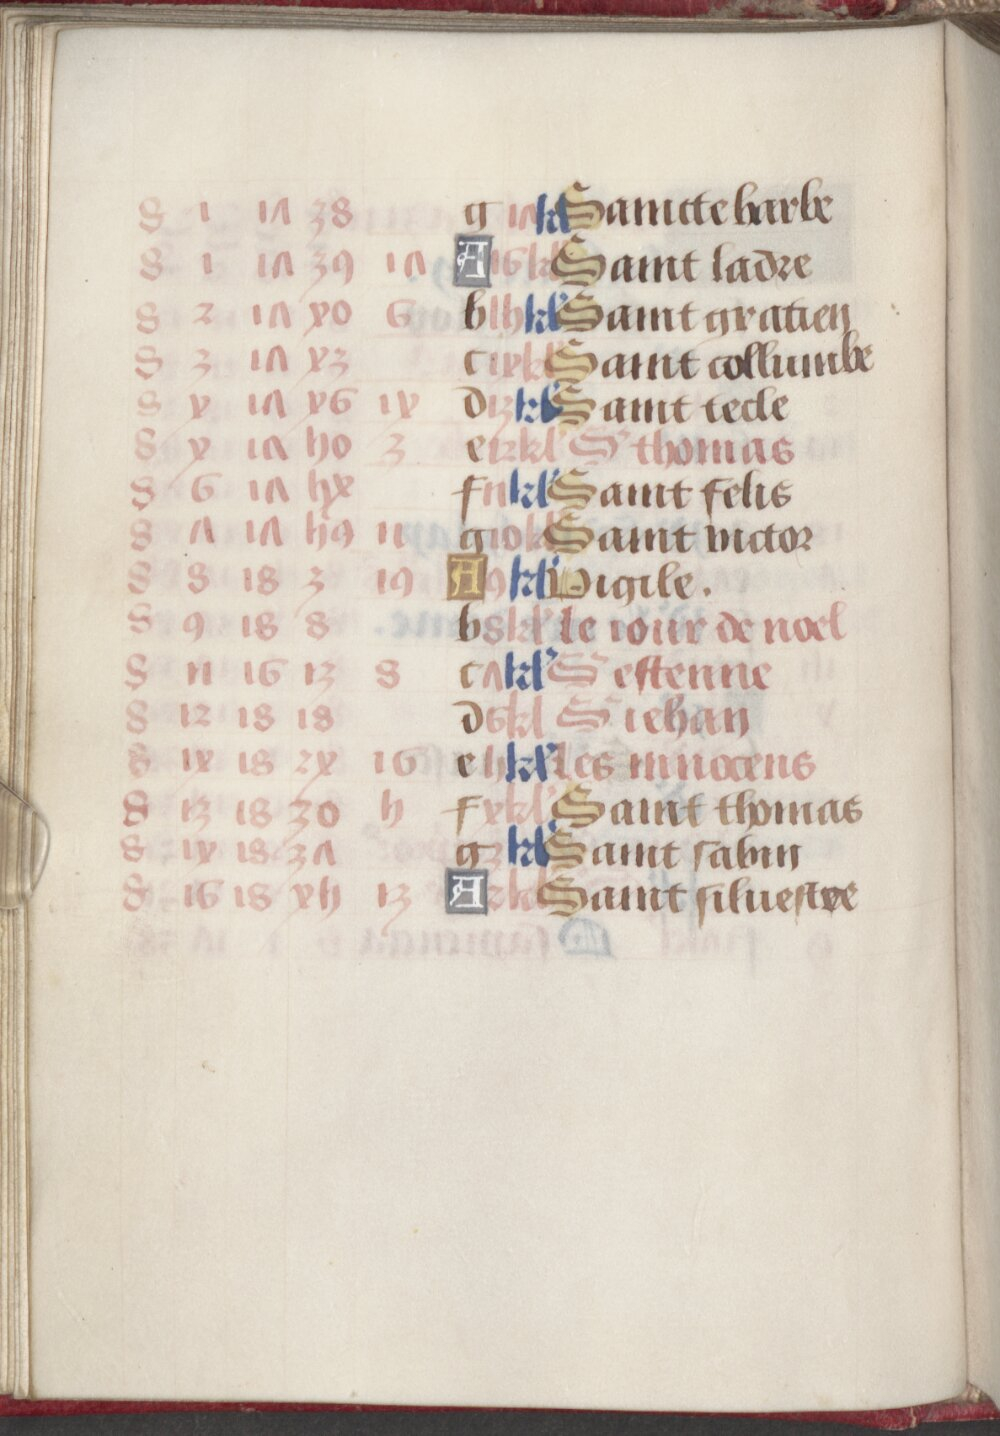 8 1 17 38 g 17 kl Saincte barbe
8 1 17 39 17 A 16 kl Saint ladre
8 2 17 40 6 b 15 kl Saint gratien
8 3 17 43 c 14 kl Saint collumbe
8 4 17 46 14 d 13 kl Saint tecle
8 4 17 50 3 e 12 kl S thomas
8 6 17 54 f 11 kl Saint felis
8 7 17 59 11 g 10 kl Saint victor
8 8 18 3 19 A 9 kl Vigile.
8 9 18 8 b 8 kl le iour de noel
8 11 16 13 8 c 7 kl S estienne
8 12 18 18 d 6 kl S iehan
8 14 18 24 16 e 5 kl les innocens
8 13 18 30 5 f 4 kl Saint thomas
8 14 18 37 g 3 kl Saint sabin
8 16 18 45 13 A 2 kl Saint siluestre